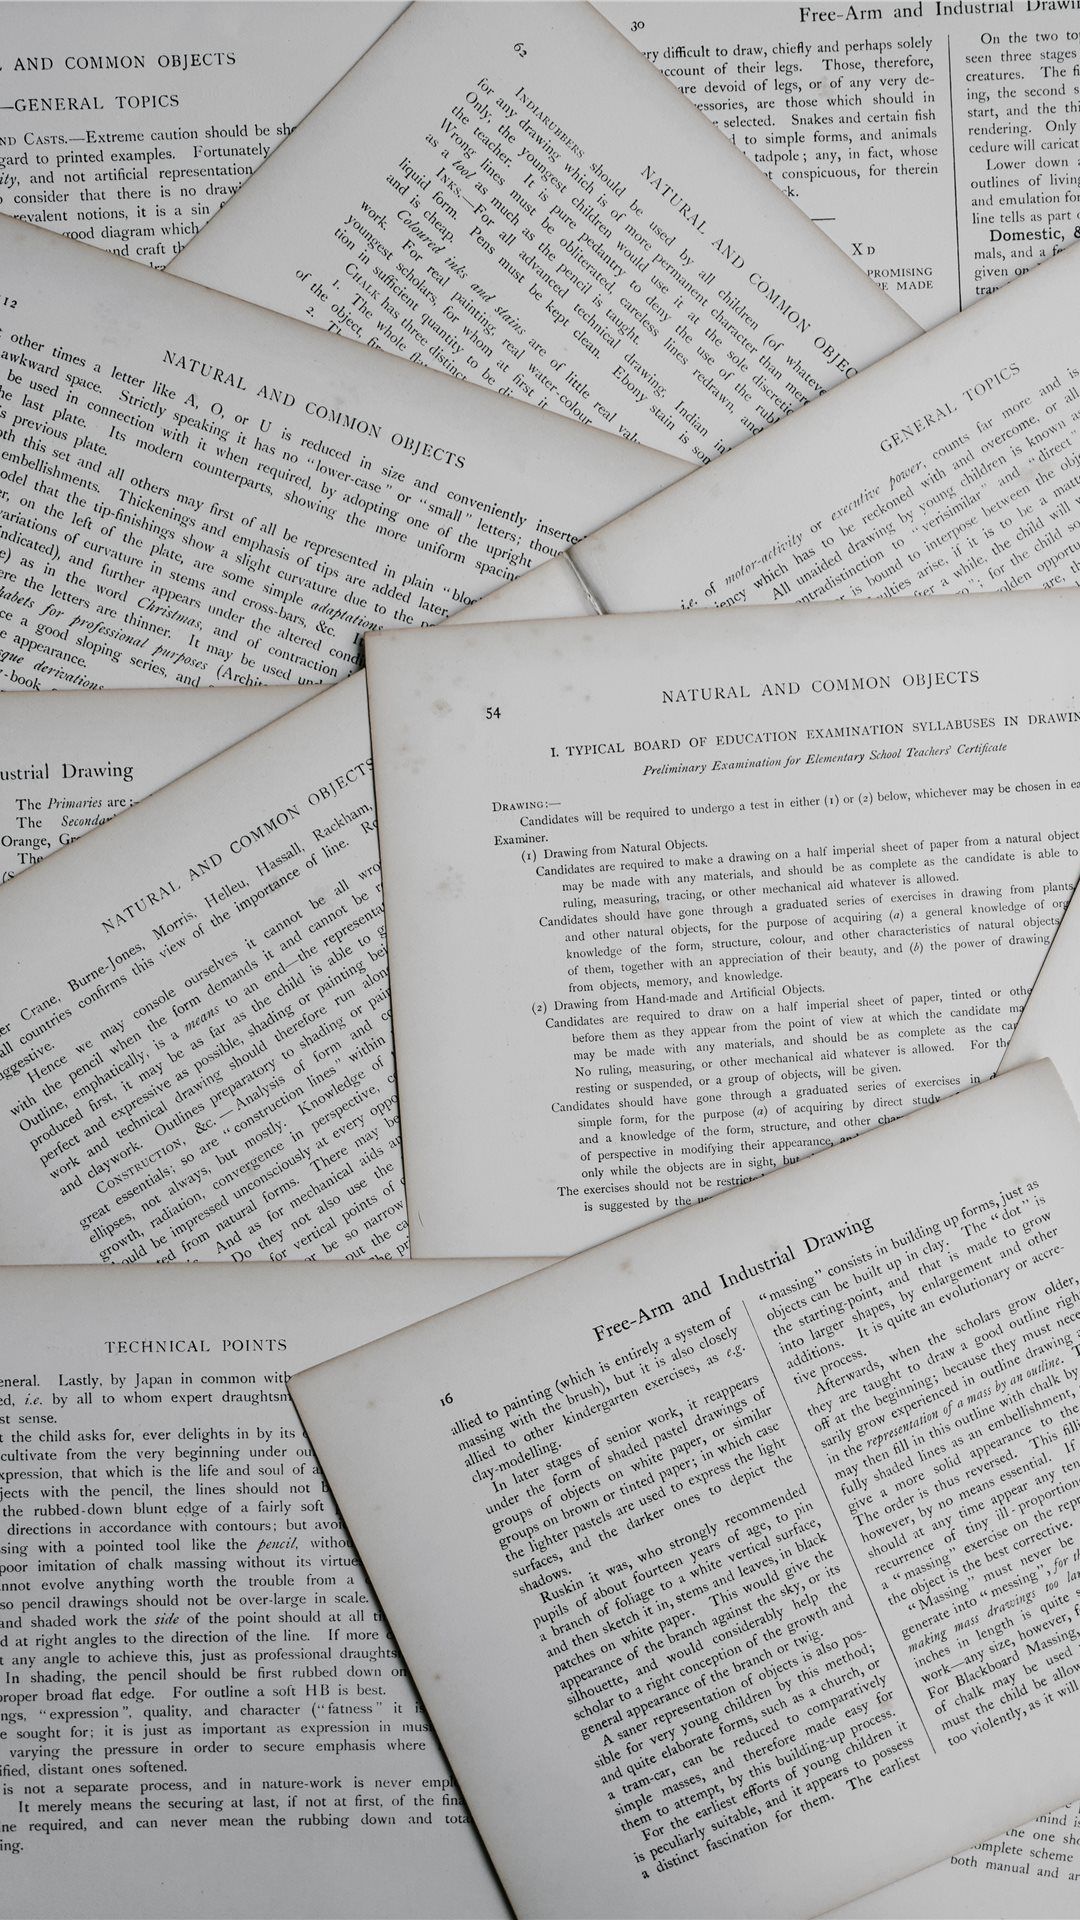 AND COMMON OBJECTS
—GENERAL TOPICS
ND CASTS.—Extreme caution should be
gard to printed examples. Fortunately
ity, and not artificial representation
consider that there is no
revalent notions, it is a sin
good diagram which
and craft
62
NATURAL AND COMMON
INDIARUBBERS should be used by all children (of
for any drawing which is of more permanent character than
Only the youngest children would use it at the sole
the teacher. It is pure pedantry to deny the use of the
Wrong lines must be obliterated, careless lines redrawn,
as a tool as much as the pencil is taught.
INKS.—For all advanced technical drawing, Indian
liquid form. Pens must be kept clean. Ebony stain is
and is cheap.
Coloured inks and stains are of little real
work. For real painting, real water-colour
youngest scholars, for whom at first
in sufficient quantity to be
CHALK has three
1. The whole
of the object,
2.
30
Free-Arm and Industrial
ry difficult to draw, chiefly and perhaps solely
account of their legs. Those, therefore,
are devoid of legs, or of any very de-
essories, are those which should in
selected. Snakes and certain fish
to simple forms, and animals
tadpole; any, in fact, whose
conspicuous, for therein
X D
PROMISING
MADE
On the two
seen three stages
creatures. The
ing, the second
start, and the
rendering. Only
cedure will
Lower down
outlines of
and emulation for
line tells as part
Domestic, &
mals, and a
given on
112
NATURAL AND COMMON OBJECTS
other times a letter like A, O, or U is reduced in size and conveniently
awkward space. Strictly speaking it has no "lower-case" or "small" letters;
be used in connection with it when required, by adopting one of the upright
last plate. Its modern counterparts, showing the more uniform
previous plate.
this set and all others may first of all be represented in plain
embellishments. Thickenings and emphasis of tips are added later.
that the tip-finishings show a slight curvature due to the
on the left of the plate, are some simple adaptations
variations of curvature in stems and cross-bars, &c.
indicated), and further appears under the altered
as in the word Christmas, and of contraction
the letters are thinner. It may be used
for professional purposes
a good sloping series, and
appearance.
derivations
-book
GENERAL TOPICS
i.e. of motor-activity or executive power, counts far more and is
which has to be reckoned with and overcome, or
All unaided drawing by young children is known
to "verisimilar" and "direct"
is bound to interpose between the
arise, if it is to be a
after a while, the child will
for the child
golden
are,
54
NATURAL AND COMMON OBJECTS
I. TYPICAL BOARD OF EDUCATION EXAMINATION SYLLABUSES IN
Preliminary Examination for Elementary School Teachers' Certificate
DRAWING:—
Candidates will be required to undergo a test in either (1) or (2) below, whichever may be chosen in
Examiner.
(1) Drawing from Natural Objects.
Candidates are required to make a drawing on a half imperial sheet of paper from a natural object
may be made with any materials, and should be as complete as the candidate is able to
ruling, measuring, tracing, or other mechanical aid whatever is allowed.
Candidates should have gone through a graduated series of exercises in drawing from plants
and other natural objects, for the purpose of acquiring (a) a general knowledge of
knowledge of the form, structure, colour, and other characteristics of natural objects
of them, together with an appreciation of their beauty, and (b) the power of drawing
from objects, memory, and knowledge.
(2) Drawing from Hand-made and Artificial Objects.
Candidates are required to draw on a half imperial sheet of paper, tinted or
before them as they appear from the point of view at which the candidate
may be made with any materials, and should be as complete as the
No ruling, measuring, or other mechanical aid whatever is allowed. For
resting or suspended, or a group of objects, will be given.
Candidates should have gone through a graduated series of exercises in
simple form, for the purpose (a) of acquiring by direct study
and a knowledge of the form, structure, and other
of perspective in modifying their appearance,
only while the objects are in sight,
The exercises should not be
is suggested by the
ustrial Drawing
The Primaries are:—
The
Orange,
The
NATURAL AND COMMON OBJECTS
Crane, Burne-Jones, Morris, Helleu, Hassall, Rackham,
all countries confirms this view of the importance of line.
suggestive.
Hence we may console ourselves it cannot be all
with the pencil when the form demands it and cannot be
Outline, emphatically, is a means to an end—the
produced first, it may be as far as the child is able to
perfect and expressive as possible, shading or painting
work and technical drawing should therefore run
and claywork. Outlines preparatory to shading or
CONSTRUCTION, &c.—Analysis of form and
great essentials; so are "construction lines" within
ellipses, not always, but mostly. Knowledge of
growth, radiation, convergence in perspective,
should be impressed unconsciously at every
from natural forms. There may be
And as for mechanical aids
Do they not also use the
for vertical points of
or be so narrow
out the
the
TECHNICAL POINTS
eneral. Lastly, by Japan in common with
ed, i.e. by all to whom expert
st sense.
the child asks for, ever delights in by its
cultivate from the very beginning under
xpression, that which is the life and soul of
jects with the pencil, the lines should not
the rubbed-down blunt edge of a fairly soft
directions in accordance with contours; but
sing with a pointed tool like the pencil,
poor imitation of chalk massing without its
nnot evolve anything worth the trouble from a
so pencil drawings should not be over-large in scale.
and shaded work the side of the point should at all
d at right angles to the direction of the line. If more
t any angle to achieve this, just as professional
In shading, the pencil should be first rubbed down
proper broad flat edge. For outline a soft HB is best.
ngs, "expression", quality, and character ("fatness" it
e sought for; it is just as important as expression in
varying the pressure in order to secure emphasis where
ified, distant ones softened.
is not a separate process, and in nature-work is never
It merely means the securing at last, if not at first, of the
ne required, and can never mean the rubbing down and
ing.
16
Free-Arm and Industrial Drawing
allied to painting (which is entirely a system of
massing with the brush), but it is also closely
allied to other kindergarten exercises, as e.g.
clay-modelling.
In later stages of senior work, it reappears
under the form of shaded pastel drawings of
groups of objects on white paper, or similar
groups on brown or tinted paper; in which case
the lighter pastels are used to express the light
surfaces, and the darker ones to depict the
shadows.
Ruskin it was, who strongly recommended
pupils of about fourteen years of age, to pin
a branch of foliage to a white vertical surface,
and then sketch it in, stems and leaves, in black
patches on white paper. This would give the
appearance of the branch against the sky, or its
silhouette, and would considerably help the
scholar to a right conception of the growth and
general appearance of the branch or twig.
A saner representation of objects is also pos-
sible for very young children by this method;
and quite elaborate forms, such as a church, or
a tram-car, can be reduced to comparatively
simple masses, and therefore made easy for
them to attempt, by this building-up process.
For the earliest efforts of young children it
is peculiarly suitable, and it appears to possess
a distinct fascination for them. The earliest
"massing" consists in building up forms, just as
objects can be built up in clay. The "dot" is
the starting-point, and that is made to grow
into larger shapes, by enlargement and other
additions. It is quite an evolutionary or accre-
tive process.
Afterwards, when the scholars grow older,
they are taught to draw a good outline
off at the beginning; because they must
sarily grow experienced in outline drawing
in the representation of a mass by an outline.
may then fill in this outline with chalk
fully shaded lines as an embellishment,
give a more solid appearance to the
The order is thus reversed. This
however, by no means essential. If
should at any time appear any
recurrence of tiny ill-
a "massing" exercise on the
the object is the best corrective.
"Massing" must never be
generate into "messing",
making mass drawings too
inches in length is quite
work—any size, however,
For Blackboard Massing,
of chalk may be used
must the child be
too violently, as it will
mind is
the one
complete scheme
both manual and